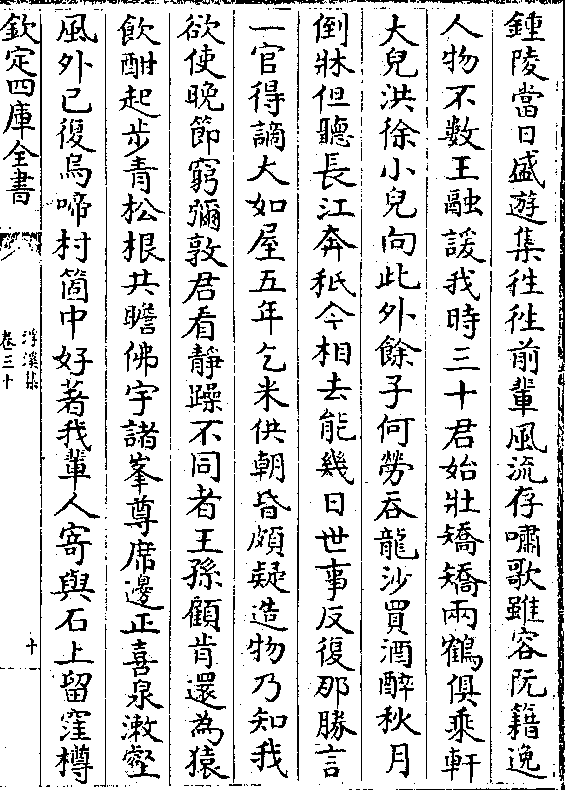 鍾陵當日盛遊集徃徃前輩風流存嘯歌雖容阮籍逸
人物不數王融諼我時三十君始壯矯矯兩鶴俱乘軒
大兒洪徐小兒向此外餘子何勞吞龍沙買酒醉秋月
倒牀但聽長江奔秪今相去能幾日世事反復那勝言
一官得謫大如屋五年乞米供朝昏頗疑造物乃知我
欲使晚節窮彌敦君看靜躁不同者王孫顧肯還為猿
飲酣起步青松根共瞻佛宇諸峯尊席邊正喜泉漱壑
風外已復烏啼村箇中好著我輩人寄與石上留窪樽
欽定四庫全書
浮溪集
卷三十
十